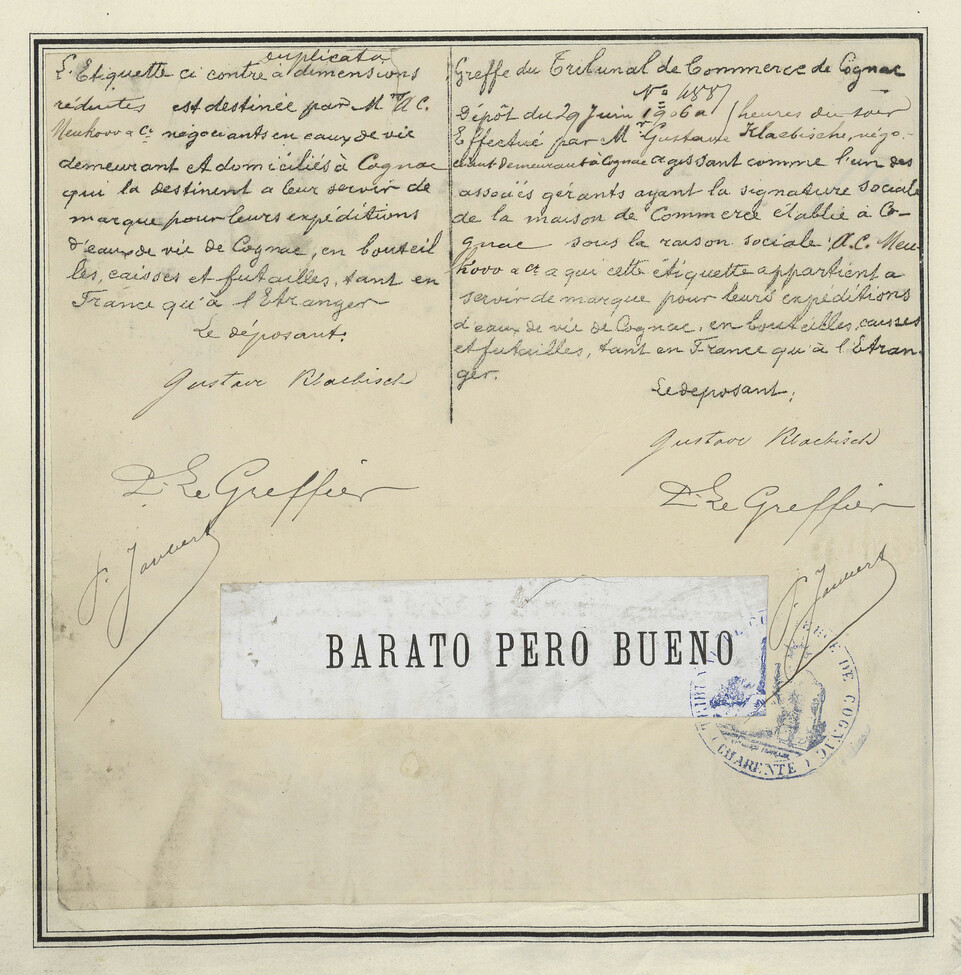 duplicata
L'Etiquette ci contre à dimensions
réduites est destinée par MM. A.C.
Neukovo & Cie négociants en eaux de vie
demeurant et domiciliés à Cognac
qui la destinent a leur servir de
marque pour leurs expéditions
d'eaux de vie de Cognac, en bouteil
les, caisses et futailles, tant en
France qu'à l'Etranger
Le déposant.
Gustave Klaebisch
D. Le Greffier
Greffe du Tribunal de Commerce de Cognac
No
Dépôt du 29 Juin 1906 a 1 heures du soir
Effectué par Mr Gustave Klaebische, négo-
ciant demeurant à Cognac agissant comme l'un des
associés gérants ayant la signature sociale
de la maison de Commerce établie à Co-
gnac sous la raison sociale A.C. Neu-
kovo & Cie a qui cette étiquette appartient a
servir de marque pour leurs expéditions
d'eaux de vie de Cognac, en bouteilles, caisses
et futailles, tant en France qu'à l'Etran-
ger.
Le déposant,
Gustave Klaebisch
D. Le Greffier
BARATO PERO BUENO
DE COGNAC
CHARENTE